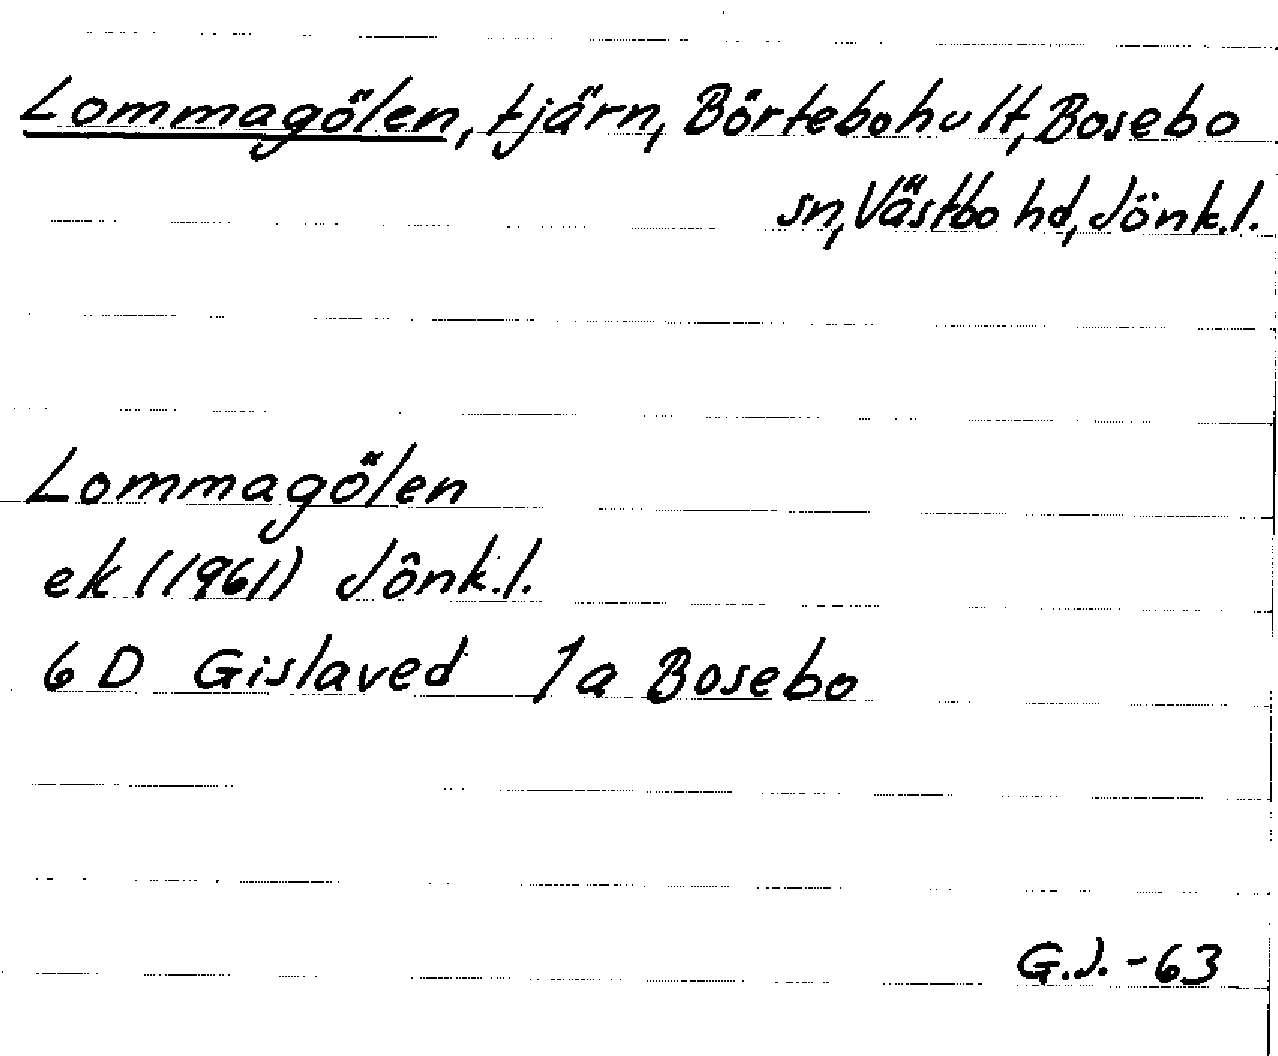 Lommagölen, tjärn, Börtebohult, Bosebo
sn, Västbo hd, Jönk.l.
Lommagölen
ek (1961) Jönk.l.
6 D Gislaved Ja Bosebo
G.J. -63